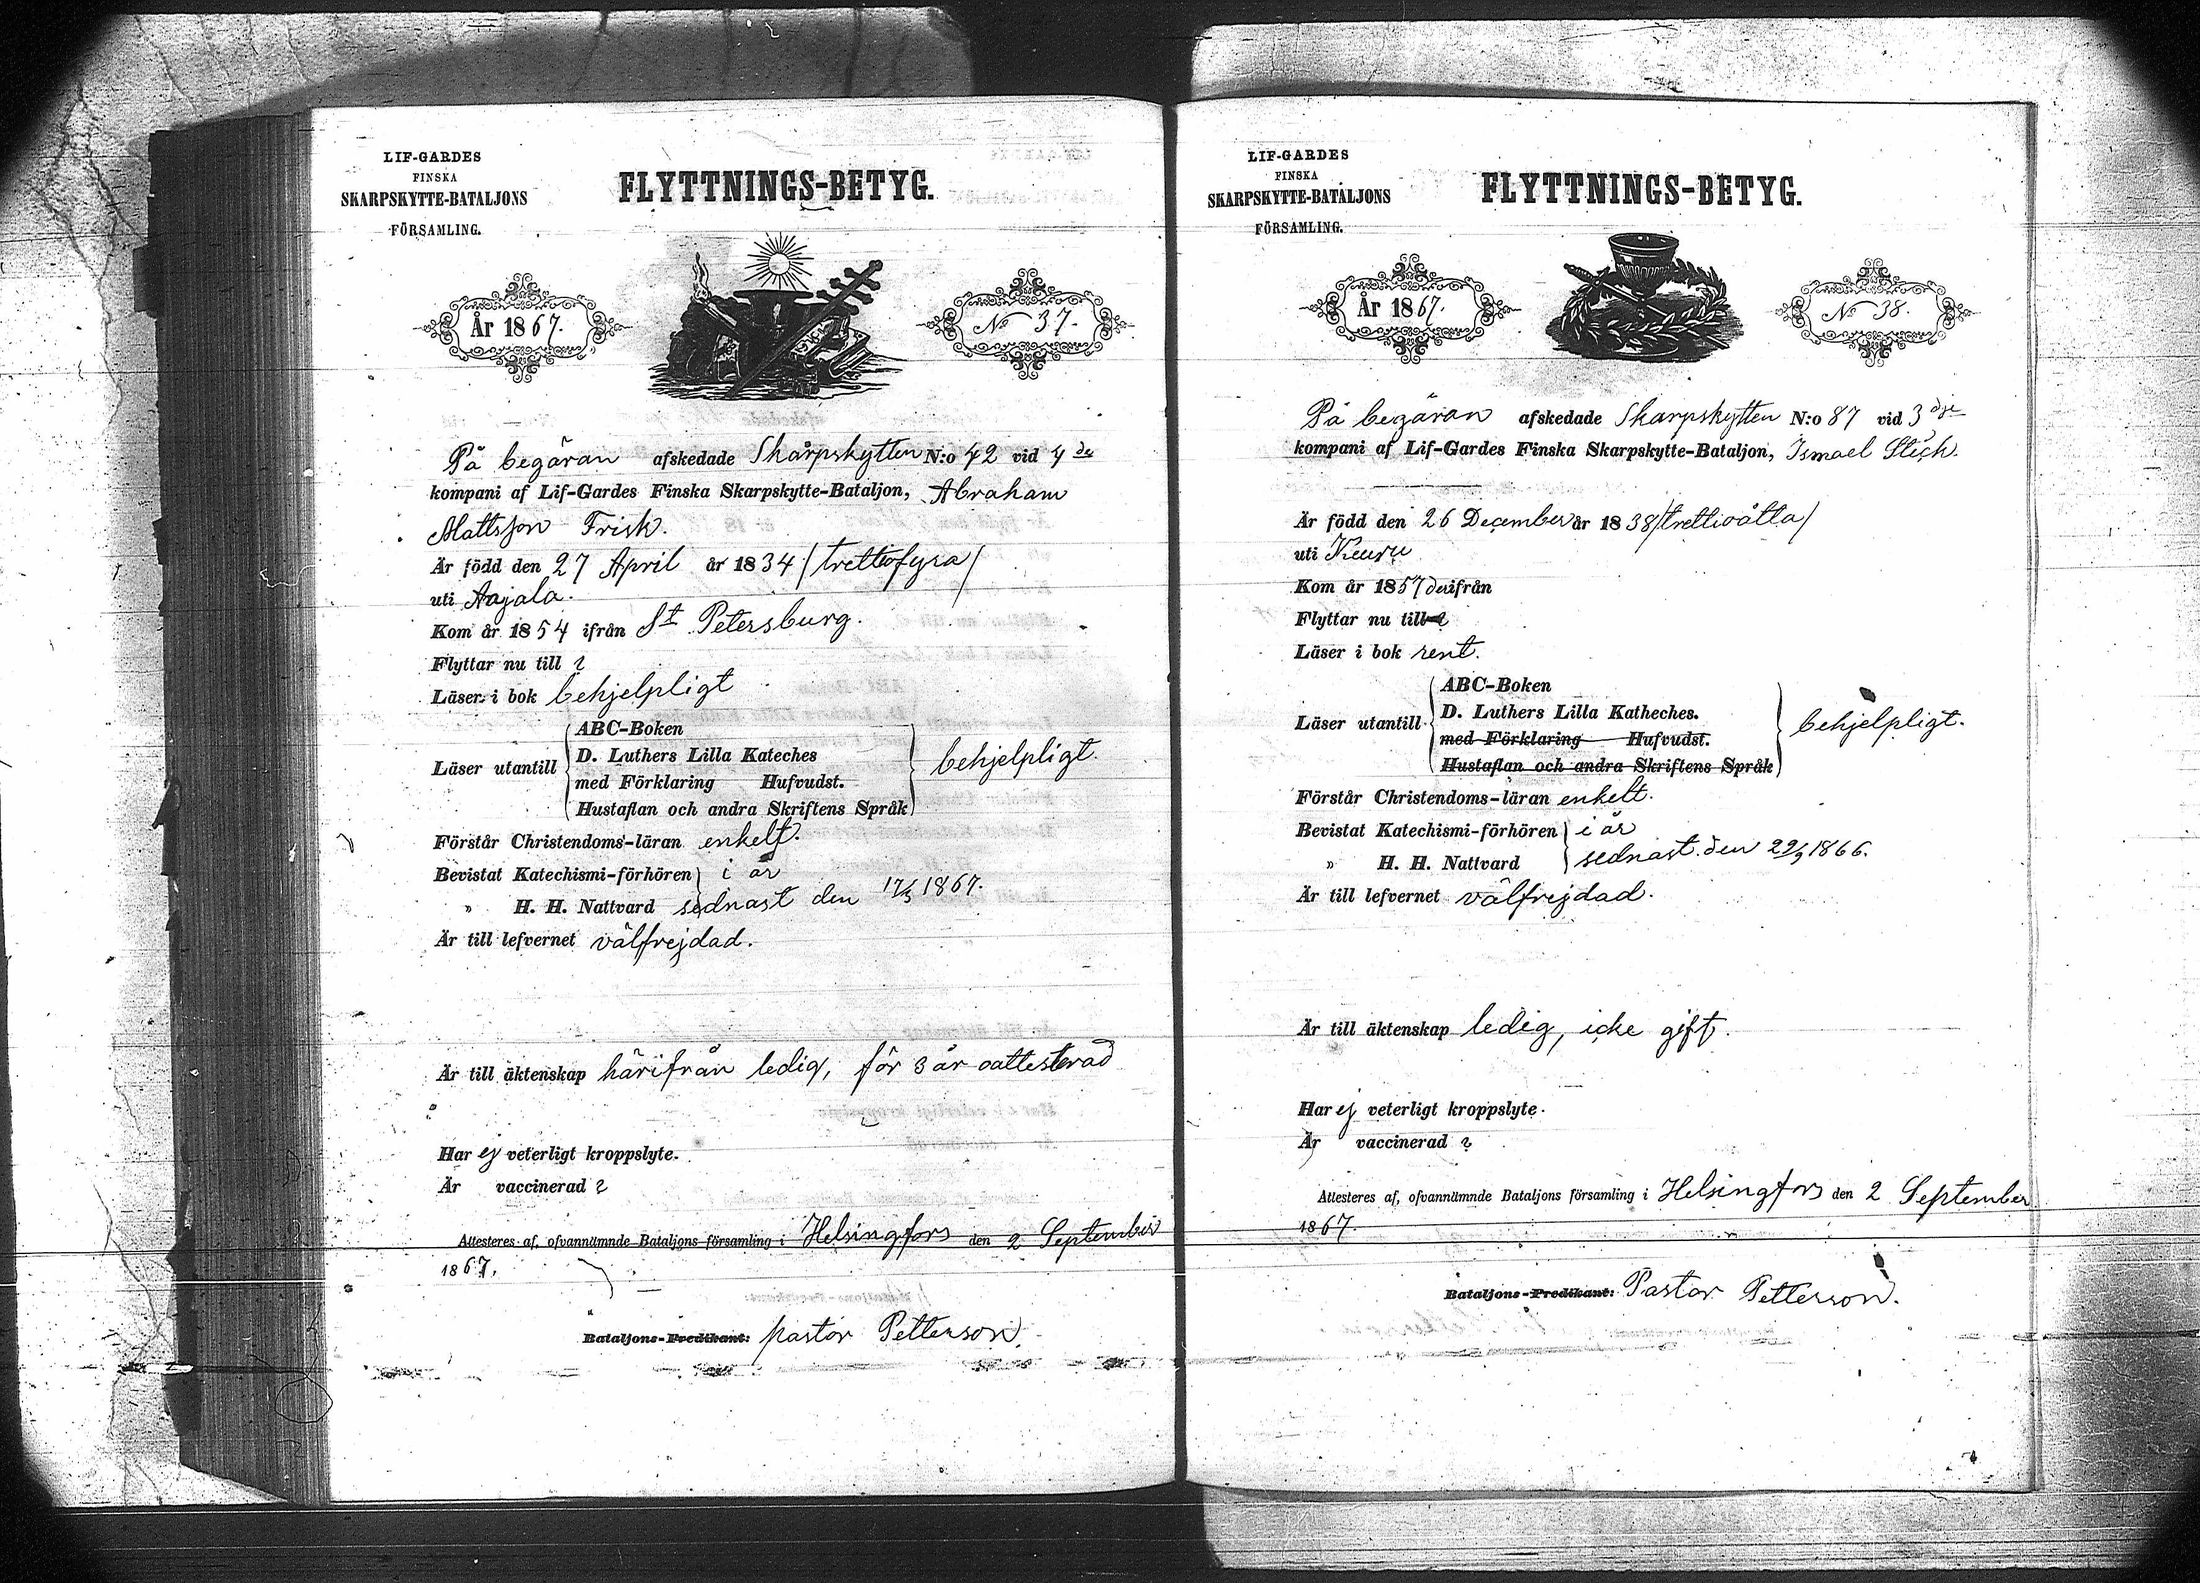 LIF-GARDES
FINSKA
SKARPSKYTTE-BATALJONS
FÖRSAMLING.
FLYTTNINGS-BETYG.
År 1867.
No 37.
På begäran afskedade Skarpskytten N:o 42 vid 4de
kompani af Lif-Gardes Finska Skarpskytte-Bataljon, Abraham
Mattsson Frisk.
Är född den 27 April år 1834 /trettiofyra/
uti Anjala.
Kom år 1854 ifrån St Petersburg.
Flyttar nu till ?
Läser i bok behjelpligt
Läser utantill
ABC-Boken
D. Luthers Lilla Kateches
med Förklaring Hufvudst.
Hustaflan och andra Skriftens Språk
behjelpligt.
Förstår Christendoms-läran enkelt.
Bevistat Katechismi-förhören i år
" H. H. Nattvard sednast den 17/3 1867.
Är till lefvernet välfrejdad.
Är till äktenskap härifrån ledig, för 3 år oattesterad
Har ej veterligt kroppslyte.
Är vaccinerad ?
Attesteres af, ofvannämnde Bataljons församling i Helsingfors den 2 September
1867.
Bataljons-Predikant: pastor Petterson.
LIF-GARDES
FINSKA
SKARPSKYTTE-BATALJONS
FÖRSAMLING.
FLYTTNINGS-BETYG.
År 1867.
No 38.
På begäran afskedade Skarpskytten N:o 87 vid 3dje
kompani af Lif-Gardes Finska Skarpskytte-Bataljon, Ismael Stich.
Är född den 26 December år 1838 /trettioåtta/
uti Keuru
Kom år 1857 derifrån
Flyttar nu till ?
Läser i bok rent.
Läser utantill
ABC-Boken
D. Luthers Lilla Katheches.
med Förklaring Hufvudst.
Hustaflan och andra Skriftens Språk
behjelpligt.
Förstår Christendoms-läran enkelt.
Bevistat Katechismi-förhören i år
" H. H. Nattvard sednast den 29/9 1866.
Är till lefvernet välfrejdad.
Är till äktenskap ledig, icke gift.
Har ej veterligt kroppslyte.
Är vaccinerad ?
Attesteres af, ofvannämnde Bataljons församling i Helsingfors den 2 September
1867.
Bataljons-Predikant: Pastor Petterson.